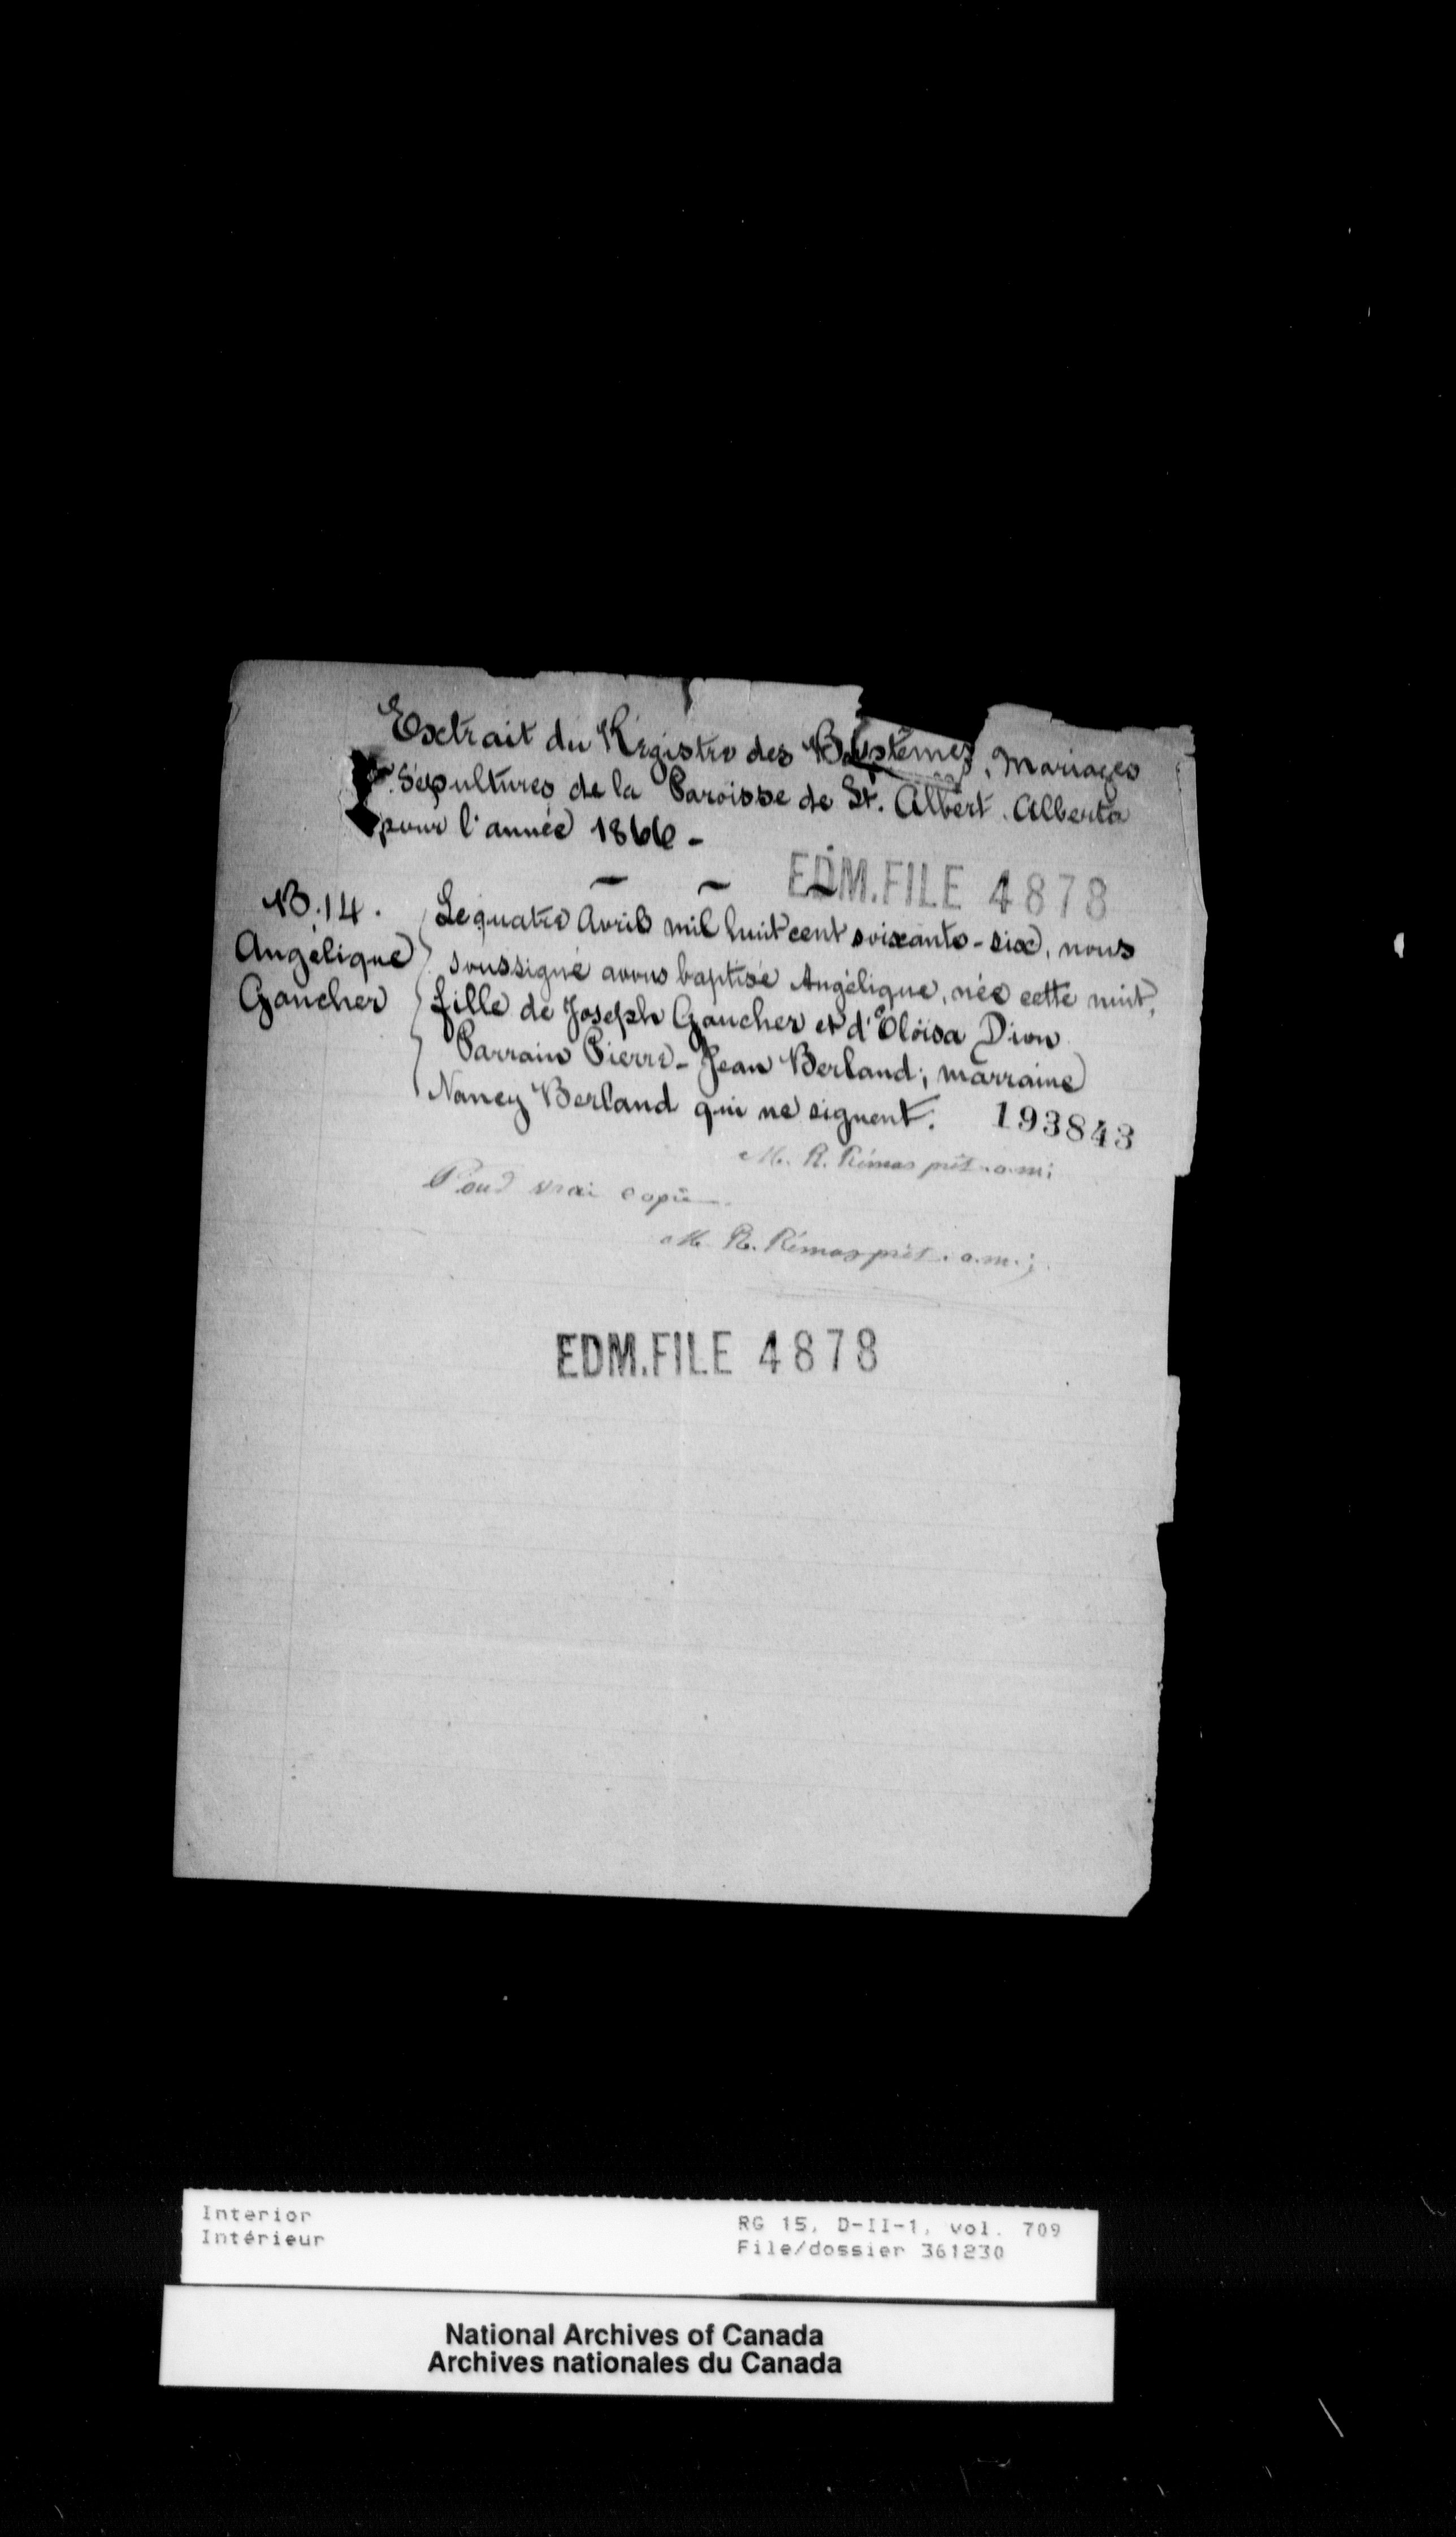 Extrait du Régistre des Baptêmes, Mariages
Sépultures de la Paroisse de St. Albert. Alberta
pour l'année 1866 -
EDM.FILE 4878
B.14.
Angélique
Gaucher
Le quatre Avril mil huit cent soixante-six, nous
soussigné avons baptisé Angélique, née cette nuit,
fille de Joseph Gaucher et d'Éloïsa Dion
Parrain Pierre-Jean Berland; marraine
Nancy Berland qui ne signent.
193843
M. R. Rémas prêt. o.m.i
Pour vrai copie
M. R. Rémas prêt. o.m.i.
EDM.FILE 4878
Interior
Intérieur
RG 15, D-II-1, vol. 709
File/dossier 361230
National Archives of Canada
Archives nationales du Canada